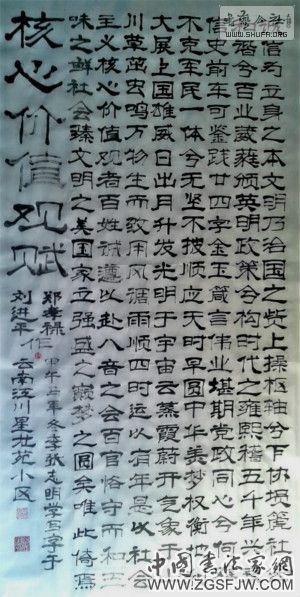 信为立身之本文明乃治国之赀上操枢轴兮下协埙篪社
谐兮百业葳蕤颁英明政策兮构时代之雍熙稽五千年兴
信史前车可鉴践廿四字金玉箴言伟业堪期党政同心兮何
不克军民一体兮无坚不披顺应天时早圆中华美梦权衡地
大展上国雄威日出月升发光明于宇宙云蒸霞蔚开气象于
川草茁虫鸣万物生而致用风谐雨顺四时运以有年是以社会
主义核心价值观者百姓诚遵以赴八音之会百官恪守而和五
味之鲜社会臻文明之美国家立强盛之巅梦之圆矣唯此倚焉
核心价值观赋
郑孝禄作 甲午年冬季张志明学写字于
刘进平 云南江川星壮苑小区
WWW.SHUFA.ORG
中国书法家网
WWW.ZGSFJW.COM